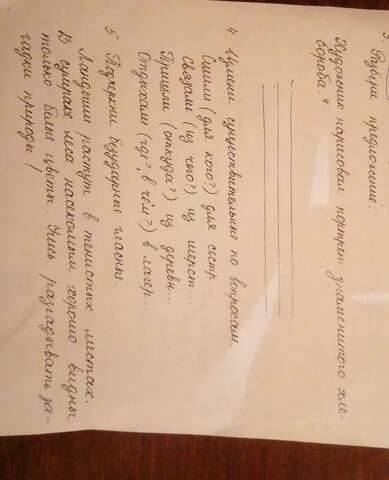 3. Разбери предложение:
Художник нарисовал портрет знаменитого хле-
бороба. 4
4. Измени существительные по вопросам.
Сшили (для кого?) для сестр...
Связали (из чего?) из шерст...
Пришли (откуда?) из деревн...
Отдыхали (где?, в чём?) в лагер...
5. Подчеркни безударные гласные.
Ландыши растут в тенистых местах.
В сумраке леса насекомым хорошо видны
только белые цветы. Учись разгадывать за-
гадки природы!